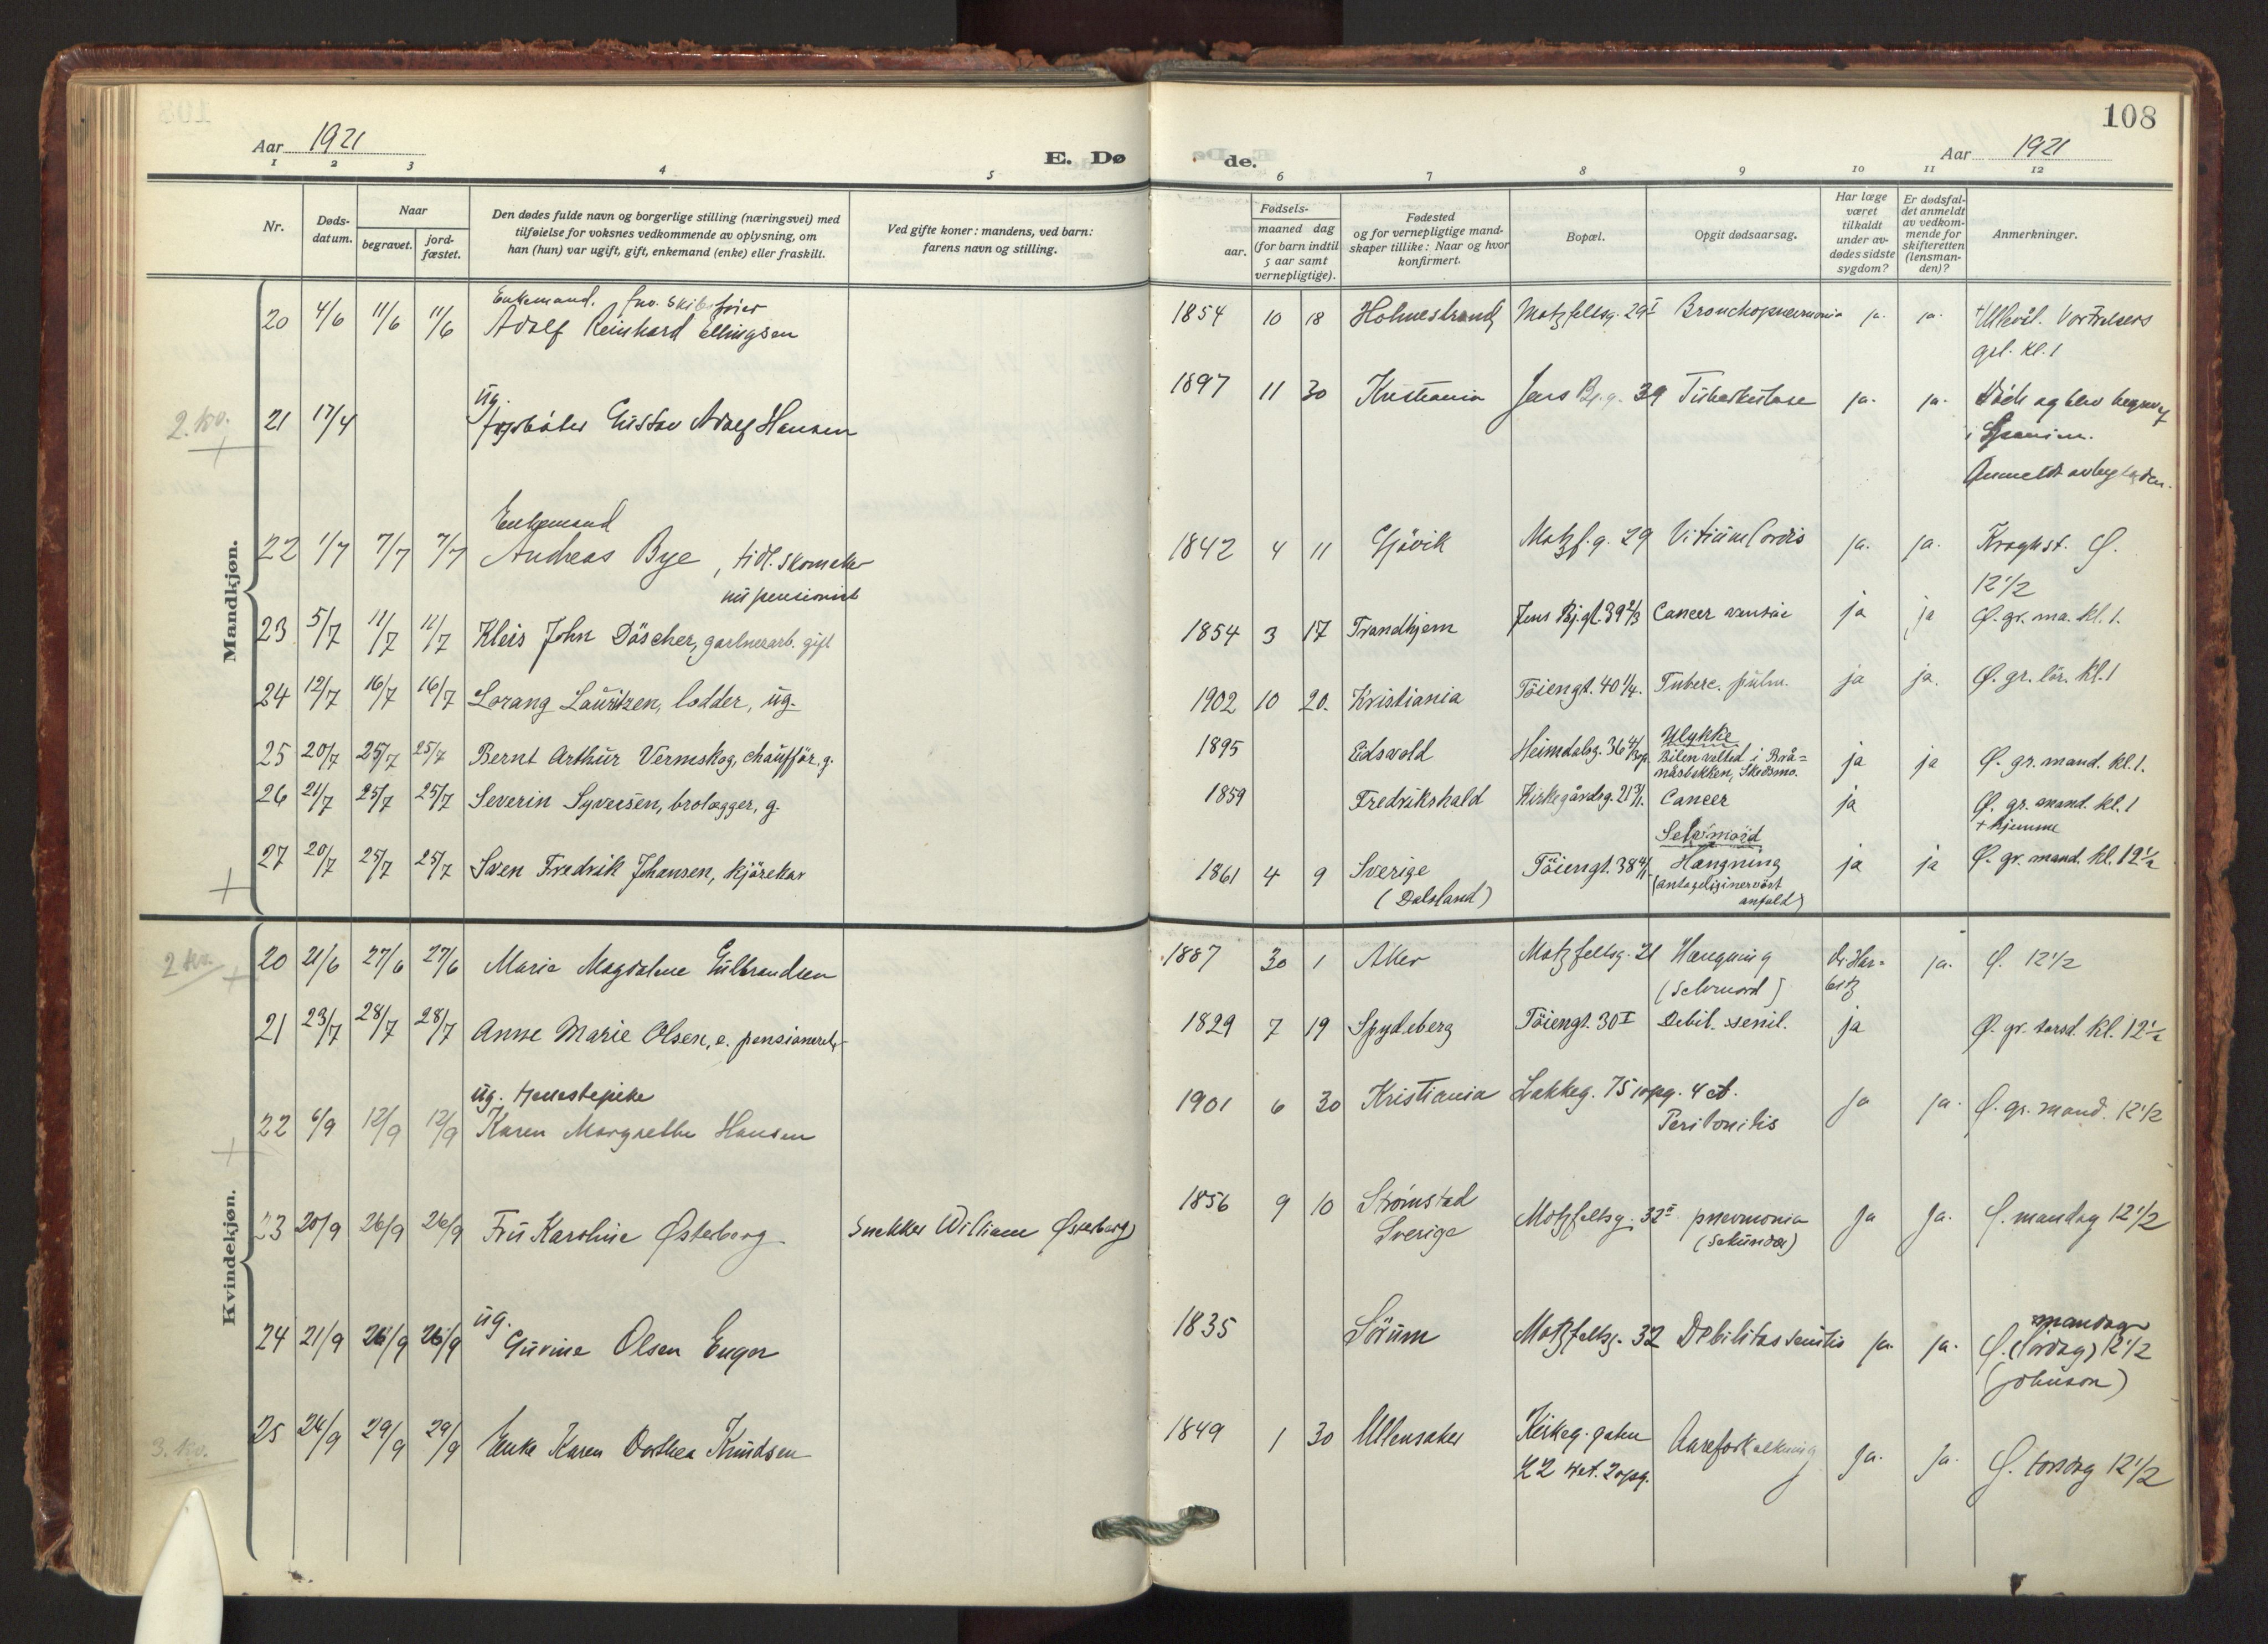 108
Aar 1921
E. Dø
de.
Aar 1921
1 2 3 4 5 6 7 8 9 10 11 12
Nr.
Døds-
datum.
Naar
begravet.
jord-
fæstet.
Den dødes fulde navn og borgerlige stilling (næringsvei) med
tilføielse for voksnes vedkommende av oplysning, om
han (hun) var ugift, gift, enkemand (enke) eller fraskilt.
Ved gifte koner: mandens, ved barn:
farens navn og stilling.
Fødsels-
aar.
maaned dag
(for barn indtil
5 aar samt
vernepligtige).
Fødested
og for vernepligtige mand-
skaper tillike: Naar og hvor
konfirmert.
Bopæl.
Opgit dødsaarsag.
Har læge
været
tilkaldt
under av-
dødes sidste
sygdom?
Er dødsfal-
det anmeldt
av vedkom-
mende for
skifteretten
(lensman-
den)?
Anmerkninger.
Mandkjøn.
Enkemand.
20 4/6 11/6 11/6 Adolf Reinhard Ellingsen 1854 10 18 Holmestrand Motzfeltsg. 29 I Bronchopneumonia ja. ja. Ullevål.
kl. 1
2. kv.
ug.
21 17/4 Gustav Adolf Hansen 1897 11 30 Kristiania Jens Bj.g. 39 Tuberkulose ja. ja. Döde og blev begravet
i Spanien.
Anmeldt
Enkemand
22 1/7 7/7 7/7 Andreas Bye, tidl. skomaker 1842 4 11 Gjövik Motzf.g. 29 Vitium Cordis ja. ja. Ø.
nu pensionist
12 1/2
23 5/7 11/7 11/7 Kleis John Döscher, gartnerarb. gift 1854 3 17 Trondhjem Jens Bj.gt. 39 2/3 Cancer ja ja Ø. gr. ma. kl. 1.
24 12/7 16/7 16/7 Lorang Lauritzen, lodder, ug. 1902 10 20. Kristiania Töiengt. 40 1/4. Tuberc. pulm. ja ja. Ø. gr. lör. kl. 1
25 20/7 25/7 25/7 Bernt Arthur Vermskog, chaufför, g. 1895 Eidsvold Heimdalsg. 36 Ulykke
Bilen veltet i Brå=
nåsbekken, Skedsmo. ja ja Ø. gr. mand. kl. 1.
26 21/7 25/7 25/7 Severin Syversen, brolægger, g. 1859 Fredrikshald Kirkegårdsg. 21 Cancer ja Ø. gr. mand. kl. 1
+ hjemme
Selvmord
27 20/7 25/7 25/7 Sven Fredrik Johansen, kjörekar 1861 4 9 Sverige Töiengt. 38 Hængning ja ja Ø. gr. mand. kl. 12 1/2
(Dalsland)
(antagelig i nervöst
anfald)
Kvindekjøn.
2 kv.
20 21/6 27/6 27/6 Marie Magdalene Gulbrandsen 1887 30 1 Aker Motzfeltsg. 21 Hængning Dr. Har=
bitz ja. Ø. 12 1/2
(Selvmord)
21 23/7 28/7 28/7 Anne Marie Olsen, e. 1829 7 19 Spydeberg Töiengt. 30 I Debil. senil. ja Ø. gr. torsd. kl. 12 1/2
ug.
22 6/9 12/9 12/9 Karen Margrethe Hansen 1901 6 30 Kristiania Lakkeg. 75 opg. 4 et. ja ja. Ø. gr. mand. 12 1/2
Peritonitis
23 20/9 26/9 26/9 Fru Karoline Østeberg Snekker Wiliam Østeberg 1856 9 10 Strömstad
Sverige Motzfeltsg. 32 II pneumonia
(sekundær) ja ja. Ø. mandag 12 1/2
ug.
24 21/9 26/9 26/9 Gurine Olsen Enger 1835 Sörum Motzfeltsg. 32 Debilitas senilis ja. ja. mandag
Ø. (lördag) 12 1/2
(Johnson)
3. kv.
25 24/9 29/9 29/9 Enke Karen Dorthea Knudsen 1849 1 30 Ullensaker Kirkeg. gaten
22 4 et. 2 opg. Aareforkalkning ja. ja. Ø. torsdag 12 1/2